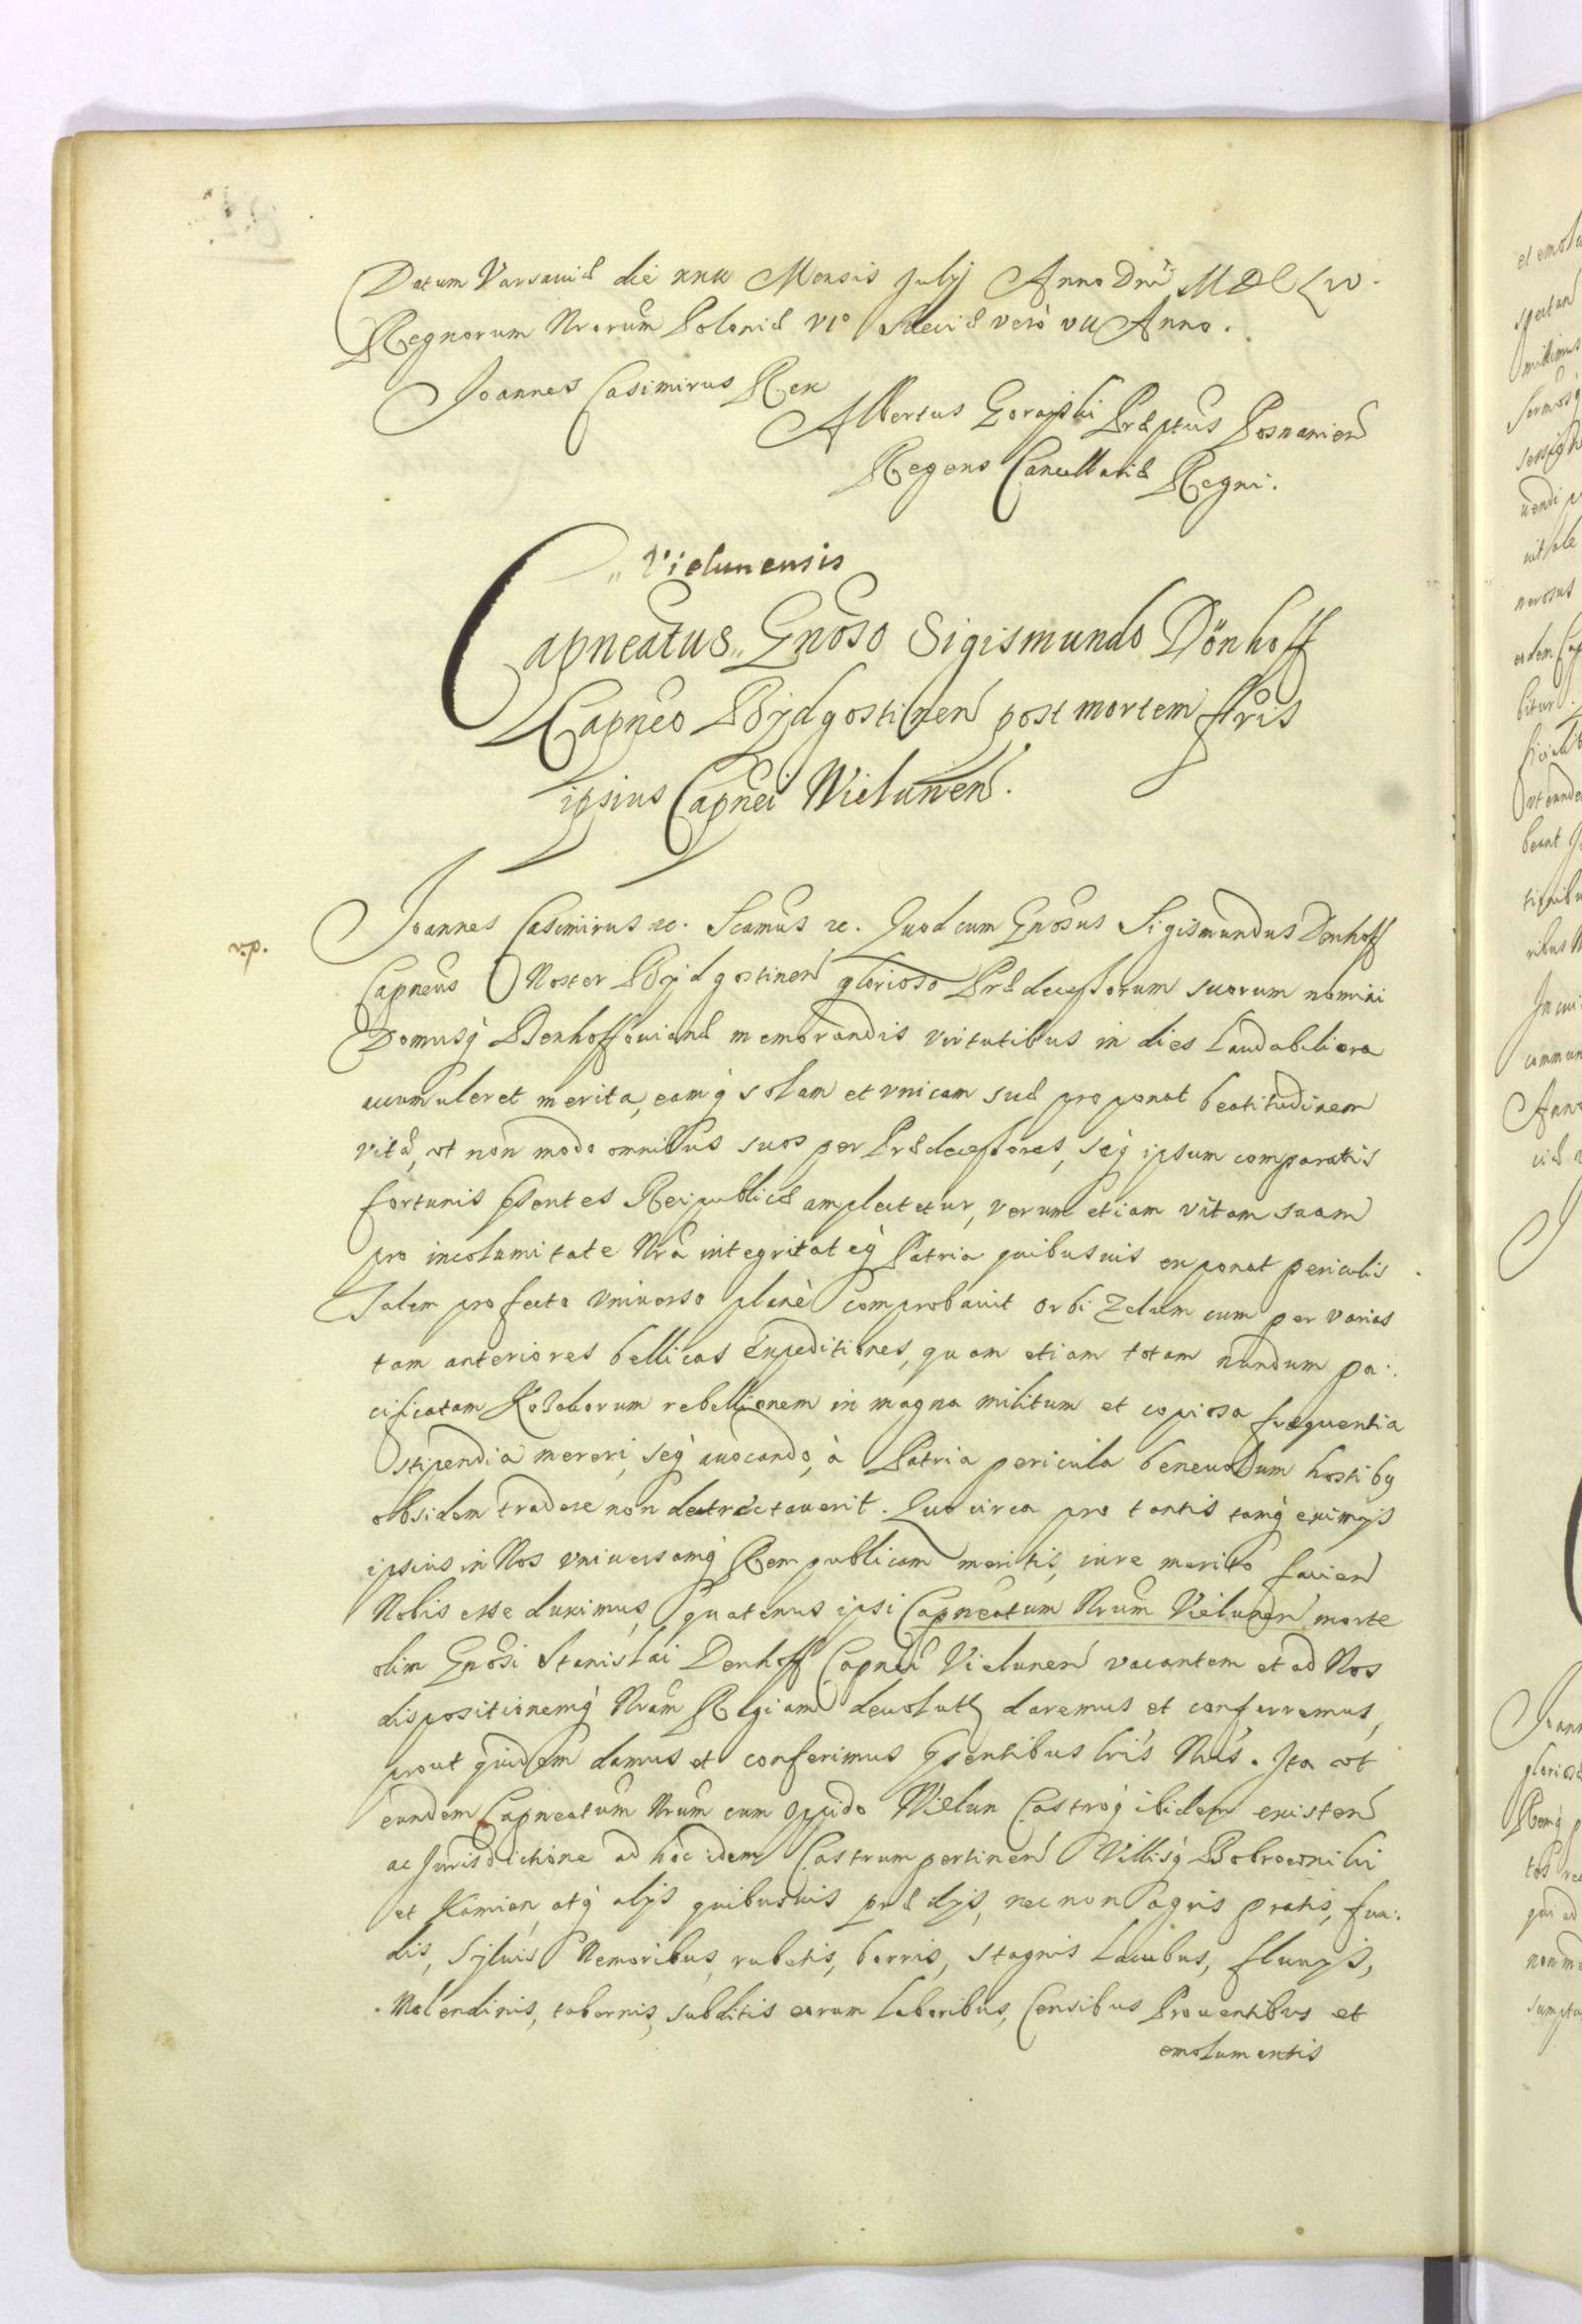 Datum Varsaviæ die Mensis Julij Anno Dni MDCLIV.
Regnorum Nrorum Poloniæ VIo Sueciæ verò VII Anno.
Joannes Casimirus Rex
Albertus Gorayski Præptus Posnanien
Regens Cancellariæ Regni.
„ Vielunensis
Capneatus „ Gnoso Sigismundo Dönhoff
Capneo Bydgostinen post mortem fris
ipsius Capnei Wielunen.
Joannes Casimirus rc. Scamus rc. Quod cum Gnosus Sigismundus Denhoff
v.p.
Capneus Noster Bydgostinen glorioso Prædecessorum suorum nomini
Domusq Denhoffouianæ memorandis virtutibus in dies laudabiliora
accumularet merita, eamq solam et vnicam suæ proponat beatitudinem
vitæ, vt non modo omnibus suos per Prædecessores, seq ipsum comparatis
fortunis Reipublicæ amplectetur, verum etiam vitam suam
pro incolumitate Nra integritateq Patriæ quibusuis exponat periculis
Talem profecto vniuerso planè comprobauit orbi Zelum cum per varias
tam anteriores bellicas Expeditiones, quam etiam totam nundum pa:
cificatam Kozakorum rebellionem in magna militum et copiosa frequentia
stipendia mereri, seq auocando, à Patria pericula beneuolum hostibq
obsidem tradere non detrectauerit. Quocirca pro tantis tamq eximijs
ipsius in Nos vniuersamq Rempublicam meritis, iure merito facien
Nobis esse duximus, quatenus ipsi Capneatum Nrum Vielunen morte
olim Gnosi Stanislai Denhoff Capnei Vielunen vacantem et ad Nos
dispositionemq Nram Regiam deuolut daremus et conferremus,
prout quidem damus et conferimus Gsentibus lris Nris. Ita vt
eundem Capneatum Nrum cum oppido Wielun Castroq ibidem existen
ac Jurisdictione ad hoc idem Castrum pertinen Villisq Bobrowniki
et Kamien, atq alijs quibusuis prædijs, nec non agris pratis, fun:
dis, Syluis Nemoribus, rubetis, borris, stagnis Lacubus, fluuijs,
Molendinis, tabernis, subditis eorum laboribus, Censibus Prouentibus et
emolumentis